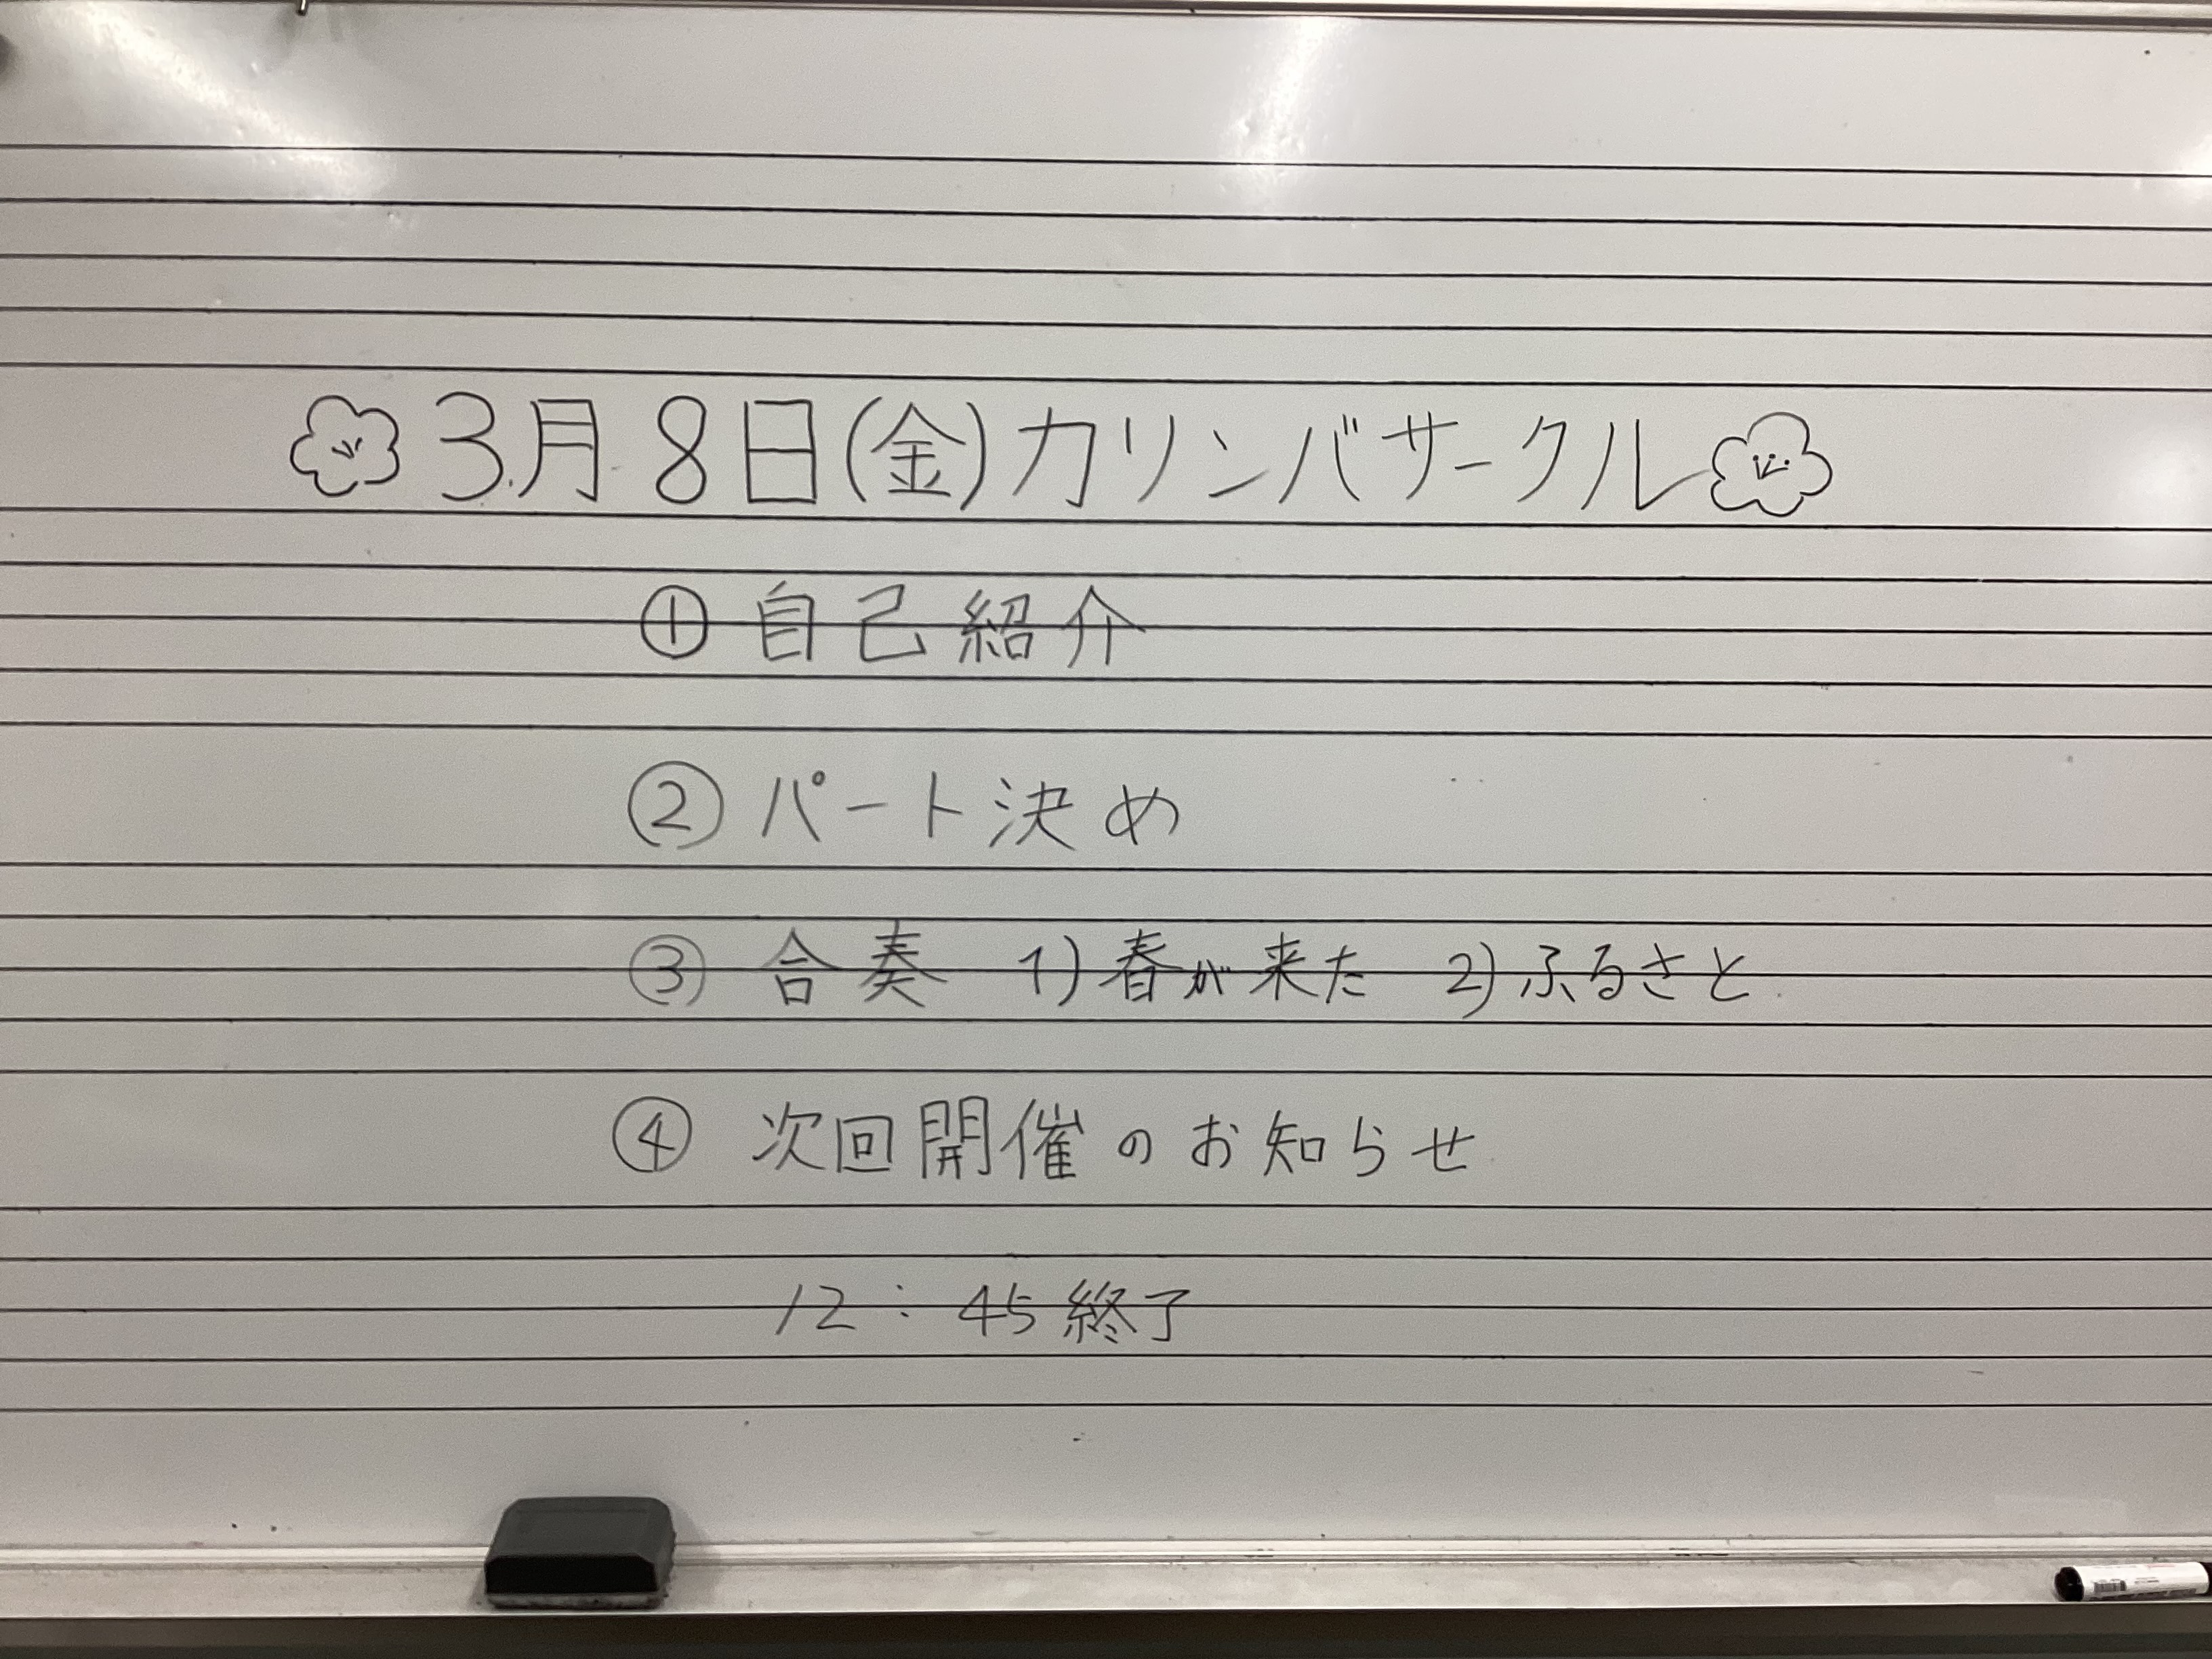 3月8日(金)カリンバサークル
① 自己紹介
② パート決め
③ 合奏 1)春が来た 2)ふるさと
④ 次回開催のお知らせ
12:45終了